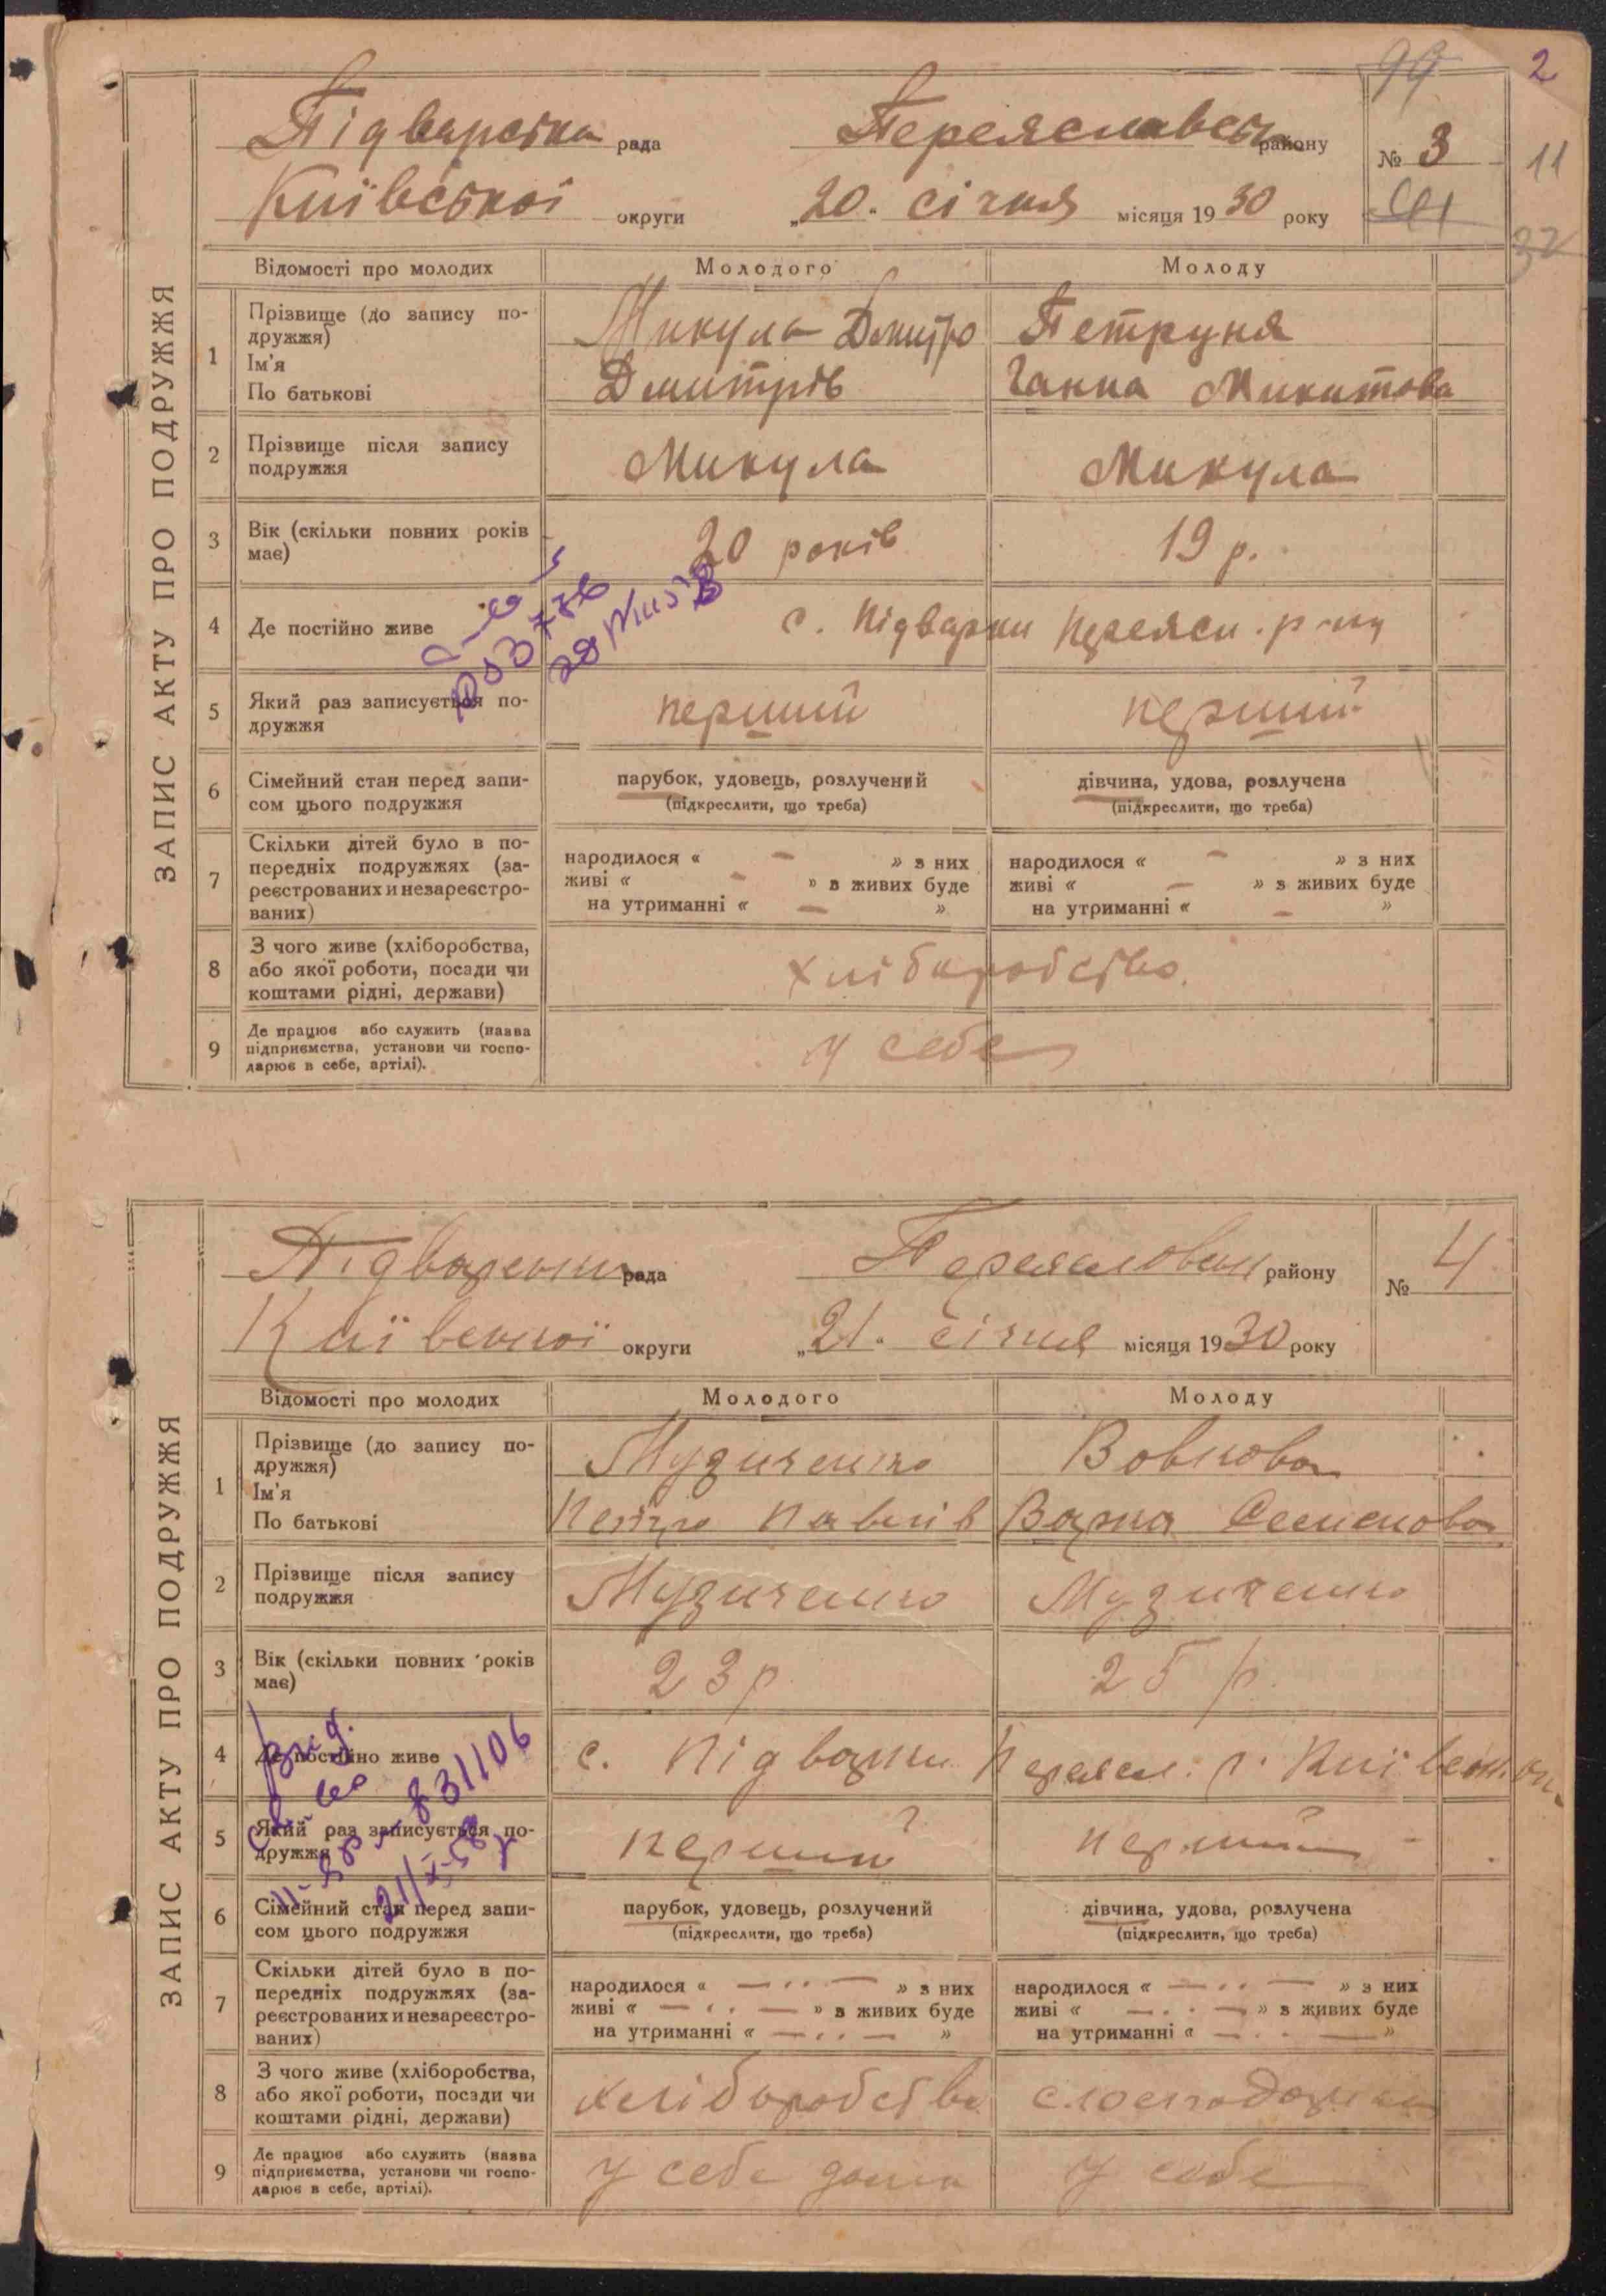 99 2
ЗАПИС АКТУ ПРО ПОДРУЖЖЯ
Підварська рада Переяславськ району № 3 11
Київської округи „20. січня місяця 1930 року
32
Відомості про молодих Молодого Молоду
1 Прізвище (до запису по-
дружжя)
Ім'я
По батькові
Микула Дмитро Петруня
Дмитрів Ганна Микитова
2 Прізвище після запису
подружжя
Микула Микула
3 Вік (скільки повних років
має)
20 років 19 р.
4 Де постійно живе с. Підварки Переясл. р-ну
5 Який раз записується по-
дружжя
перший перший
6 Сімейний стан перед запи-
сом цього подружжя
парубок, удовець, розлучений дівчина, удова, розлучена
(підкреслити, що треба) (підкреслити, що треба)
7 Скільки дітей було в по-
передніх подружжях (за-
реєстрованих и незареєстро-
ваних)
народилося « — » з них народилося « — » з них
живі « — » з живих буде живі « — » з живих буде
на утриманні « — » на утриманні « — »
8 З чого живе (хліборобства,
або якої роботи, посади чи
коштами рідні, держави)
хліборобство.
9 Де працює або служить (назва
підприємства, установи чи госпо-
дарює в себе, артілі).
у себе
ЗАПИС АКТУ ПРО ПОДРУЖЖЯ
Підварськ рада Переяславськ району № 4
Київської округи „21. січня місяця 1930 року
Відомості про молодих Молодого Молоду
1 Прізвище (до запису по-
дружжя)
Ім'я
По батькові
Музиченко Вовкова
Петро Павлів Варка Семенова
2 Прізвище після запису
подружжя
Музиченко Музиченко
3 Вік (скільки повних років
має)
23 р 25 р.
4 Де постійно живе с. Підварки Переясл. р. Київськ. ок.
831106
5 Який раз записується по-
дружжя
перший перший
6 Сімейний стан перед запи-
сом цього подружжя
парубок, удовець, розлучений дівчина, удова, розлучена
(підкреслити, що треба) (підкреслити, що треба)
7 Скільки дітей було в по-
передніх подружжях (за-
реєстрованих и незареєстро-
ваних)
народилося « — · · — » з них народилося « — · · — » з них
живі « — · · — » з живих буде живі « — · · — » з живих буде
на утриманні « — · · — » на утриманні « — · · — »
8 З чого живе (хліборобства,
або якої роботи, посади чи
коштами рідні, держави)
хліборобство
9 Де працює або служить (назва
підприємства, установи чи госпо-
дарює в себе, артілі).
у себе дома у себе